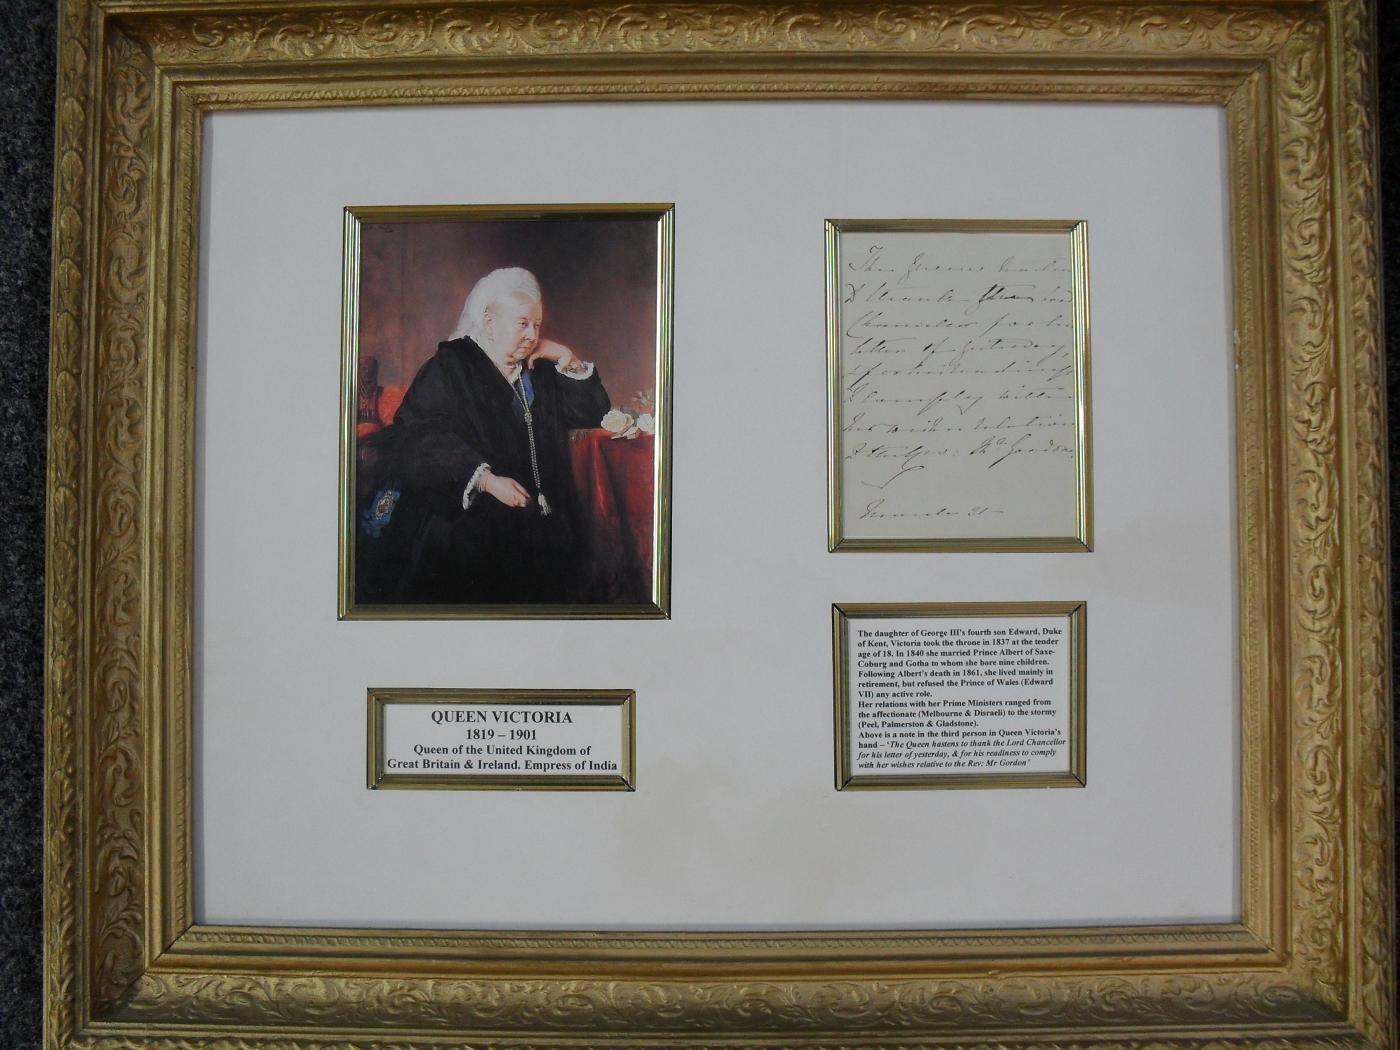 The Queen hastens
& thank the Lord
Chancellor for his
letter of yesterday,
& for his readiness
to comply with
her wishes relative
to the Rev: Mr Gordon.
March 21
QUEEN VICTORIA
1819 – 1901
Queen of the United Kingdom of
Great Britain & Ireland. Empress of India
The daughter of George III's fourth son Edward, Duke
of Kent, Victoria took the throne in 1837 at the tender
age of 18. In 1840 she married Prince Albert of Saxe-
Coburg and Gotha to whom she bore nine children.
Following Albert's death in 1861, she lived mainly in
retirement, but refused the Prince of Wales (Edward
VII) any active role.
Her relations with her Prime Ministers ranged from
the affectionate (Melbourne & Disraeli) to the stormy
(Peel, Palmerston & Gladstone).
Above is a note in the third person in Queen Victoria's
hand – 'The Queen hastens to thank the Lord Chancellor
for his letter of yesterday, & for his readiness to comply
with her wishes relative to the Rev: Mr Gordon'